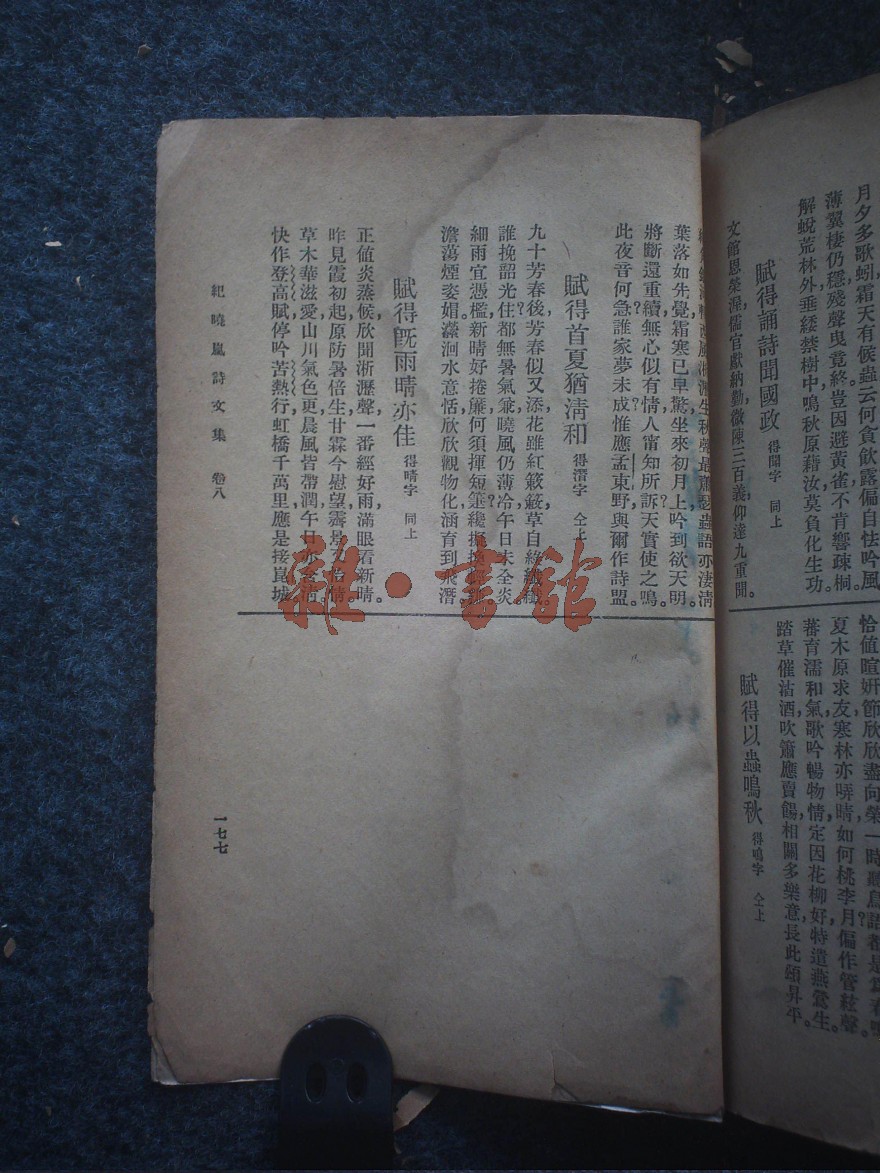 月夕多歌蚓，霜天有候蟲。云何貪飲露，偏自怯吟風。
薄翼棲仍穩，殘聲曳竟終。豈因避黃雀，不肯響疎桐。
解蛻荒林外，垂緌禁樹中。鳴秋原藉汝，莫負化生功。
賦得誦詩聞國政 得聞字 同上
文館恩榮渥，儒官獻納勤。微陳三百義，仰達九重聞。
恰值暄妍節，欣欣盡向榮。一時聽鳥語，
夏木原求友，寒林亦哢晴。如何桃李月，偏作管絃聲？
蕃育濡和氣，歌吟暢物情。定因花柳好，特遣燕鶯生。
踏草催沽酒，吹簫應賣餳。相關多樂意，長此頌昇平。
賦得以蟲鳴秋 得鳴字 仝上
生秋聲最蕭瑟，蟲語亦淒清。
葉落如先覺，霜寒已早驚。坐來初月上，吟到欲天明。
將斷還重續，無心似有情。人甯知所訴，天實使之鳴。
此夜音何急？誰家夢未成？惟應孟東野，與爾作詩盟。
賦得首夏猶淸和 得潛字 仝上
九十芳春後，芳春似又添。花雖紅簌簌，草自綠纖纖。
誰挽韶光住？都無暑氣兼。曉風仍薄冷，午日未全炎。
細雨宜憑檻，新晴好捲廉。何須揮短箑？纔擬換
澹蕩煙姿媚，瀠洄水意恬。欣欣觀物化，涵育到飛潛。
賦得旣雨晴亦佳 得晴字 同上
正值炎蒸候，欣聞淅瀝聲。一番經好雨，滿眼看新晴。
昨見霞初起，原防暑倍生。甘霖今慰望，霽景
草木華滋愛，山川氣色更。晨風皆帶潤，午日亦
快作登高賦，停吟苦熱行。虹橋千萬里，應是接崑城。
紀曉嵐詩文集 卷八
一七七
雜·書館